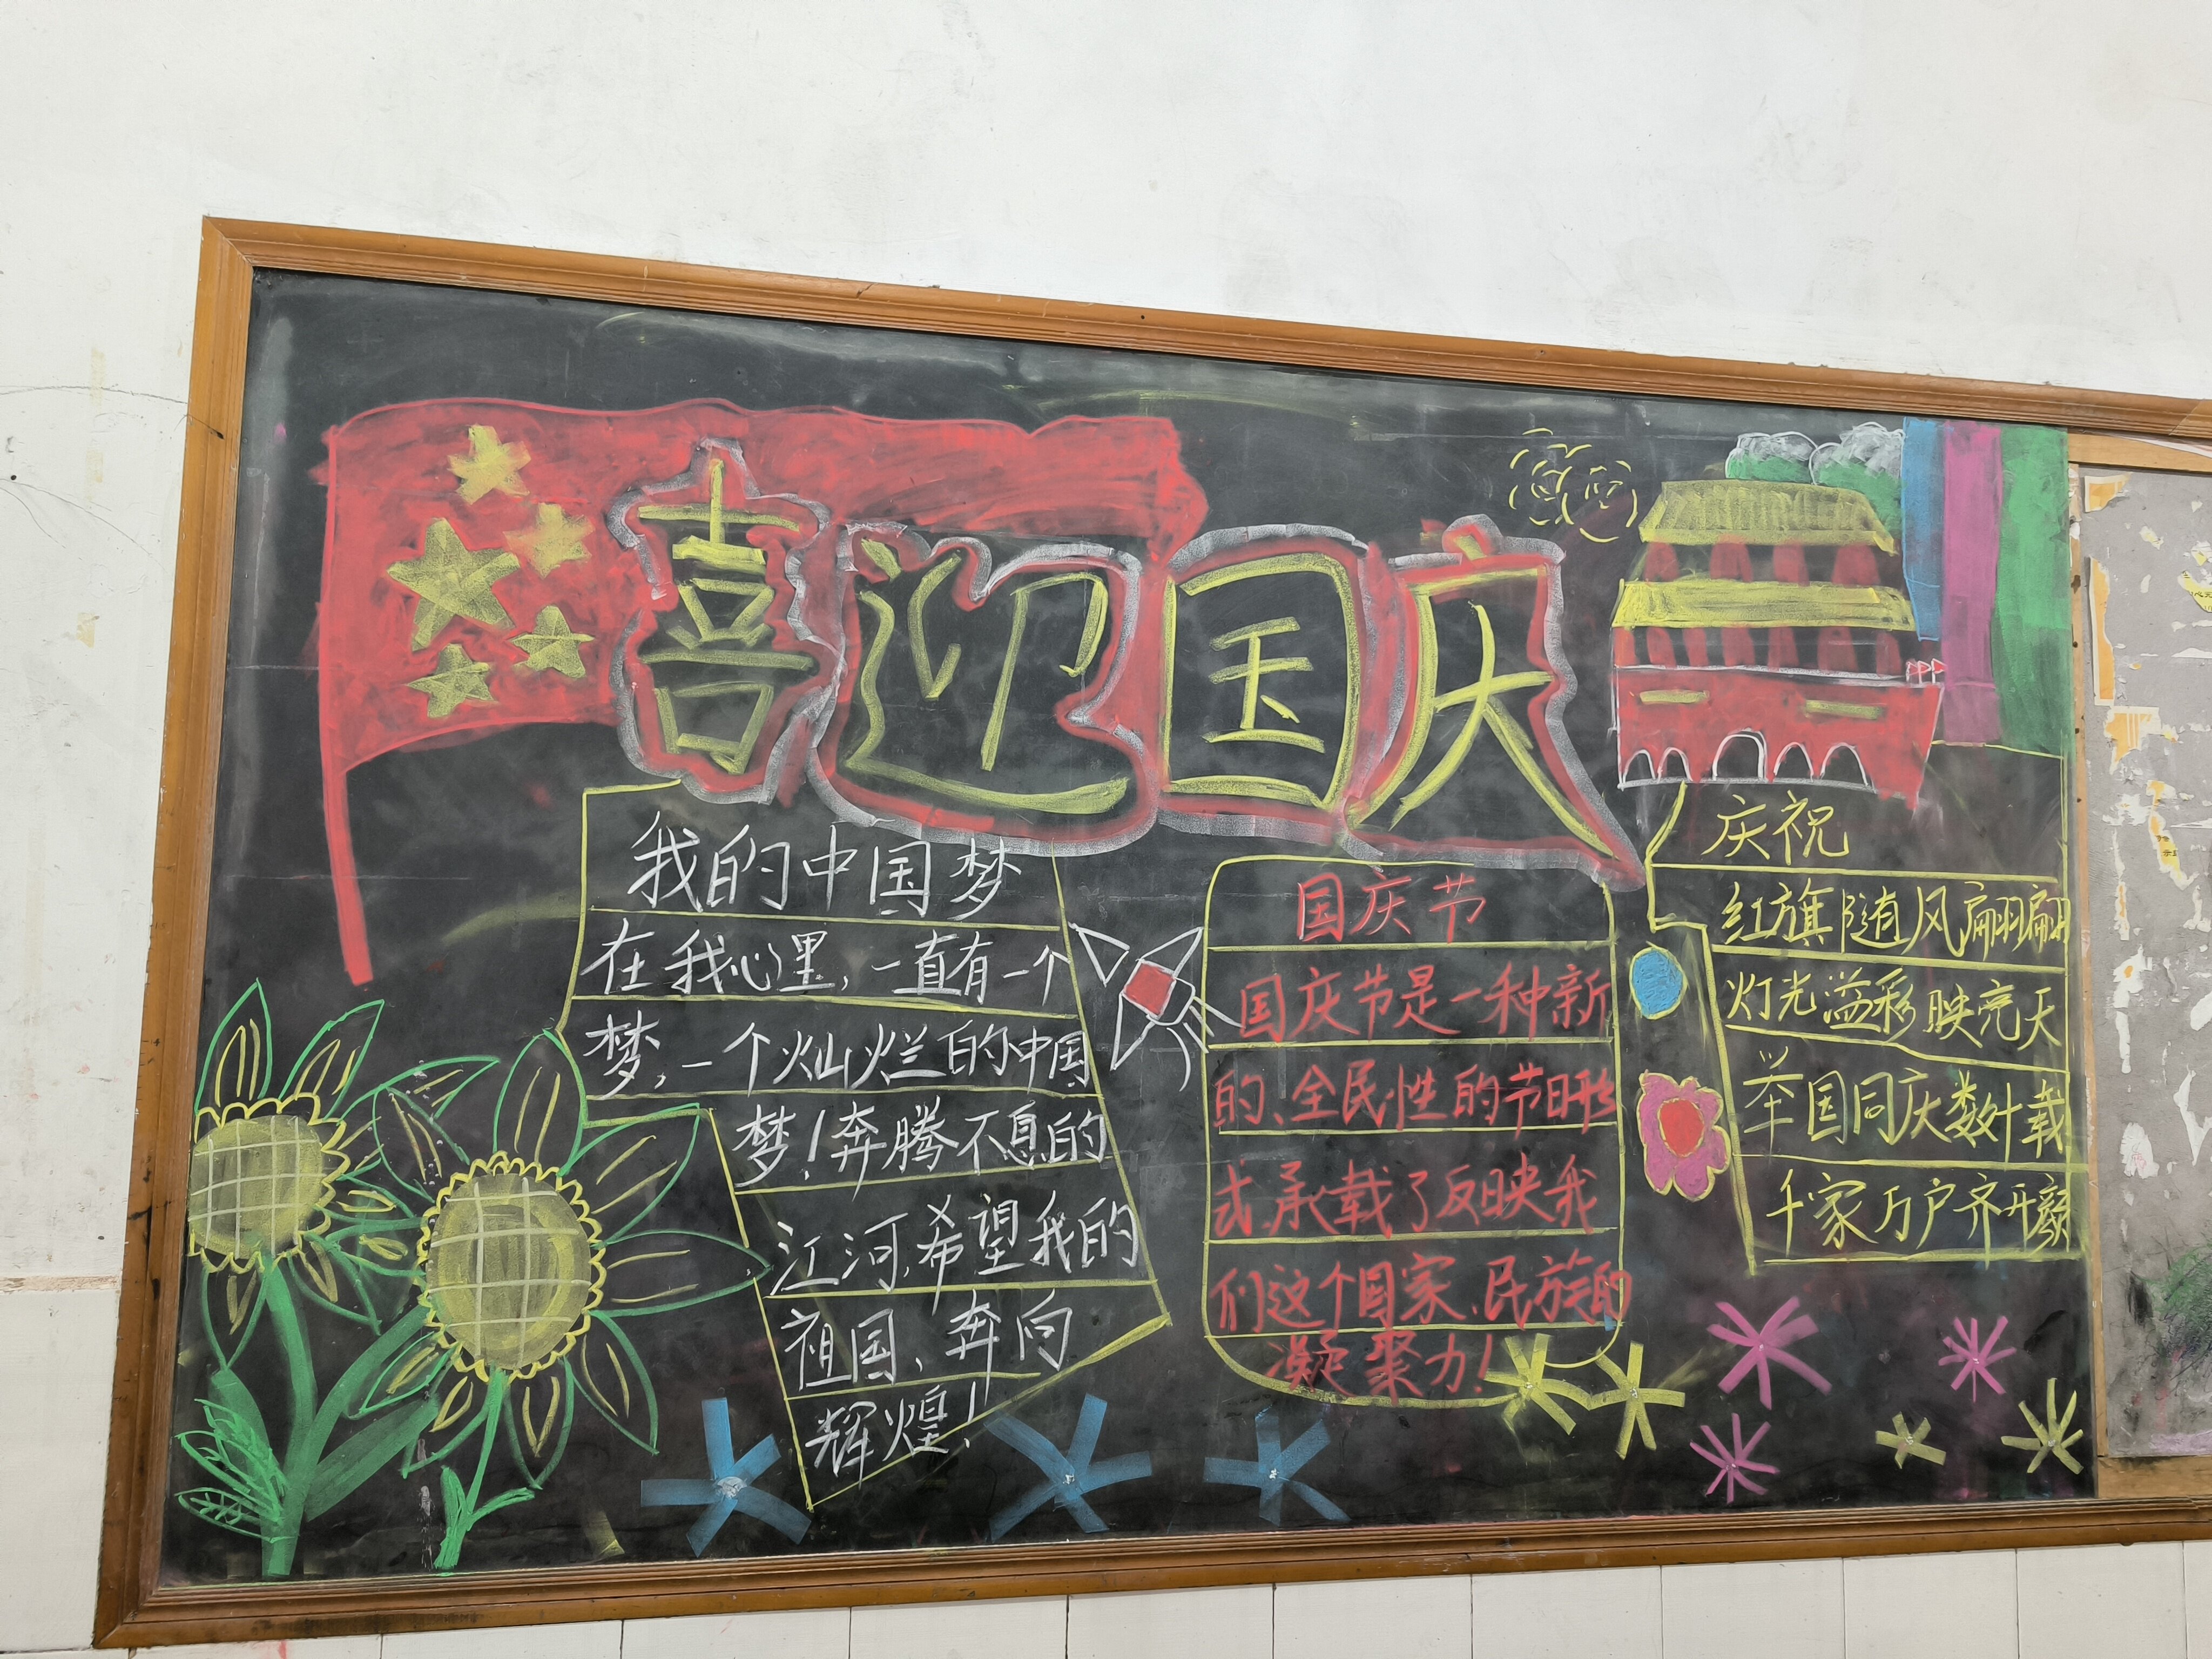 喜迎国庆
我的中国梦
在我心里，一直有一个
梦，一个灿烂的中国
梦！奔腾不息的
江河，希望我的
祖国、奔向
辉煌！
国庆节
国庆节是一种新
的、全民性的节日形
式，承载了反映我
们这个国家、民族的
凝聚力！
庆祝
红旗随风翩翩
灯光溢彩映亮天
举国同庆数计载
千家万户齐开颜